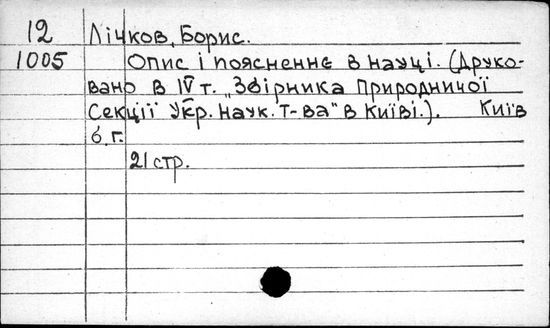 12 Лічков, Борис.
1005 Опис і поясненнє в науці. (Друко-
вано в IV т. „Збірника Природничої
Секції Укр. Наук. Т-ва" в Київі.). Київ
б.г.
21 стр.